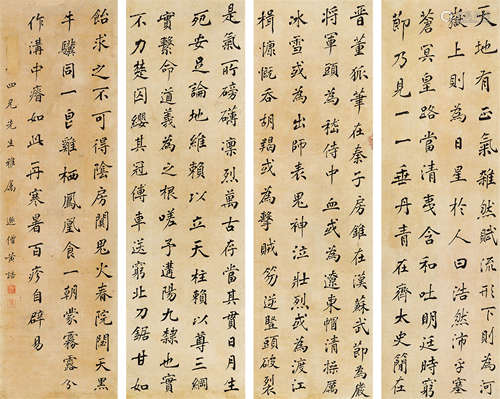 天地有正氣雜然賦流形下則為河
嶽上則為日星於人曰浩然沛乎塞
蒼冥皇路當清夷含和吐明廷時窮
節乃見一一垂丹青在齊太史簡在
晉董狐筆在秦子房錐在漢蘇武節為嚴
將軍頭為嵇侍中血或為遼東帽清操厲
冰雪或為出師表鬼神泣壯烈或為渡江
楫慷慨吞胡羯或為擊賊笏逆豎頭破裂
是氣所磅礴凜烈萬古存當其貫日月生
死安足論地維賴以立天柱賴以尊三綱
實繫命道義為之根嗟予遘陽九隸也實
不力楚囚纓其冠傳車送窮北刀鋸甘如
飴求之不可得陰房闃鬼火春院閟天黑
牛驥同一皀雞棲鳳凰食一朝蒙霧露分
作溝中瘠如此再寒暑百疹自辟易
四兄先生雅屬 遜僧黃誥